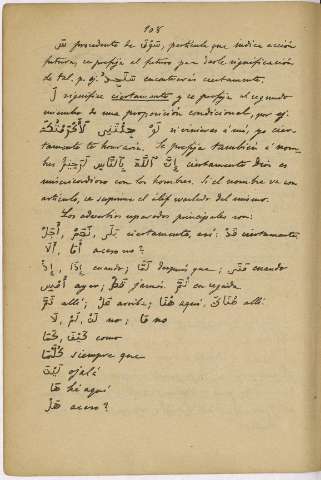 108
سَ procedente de سَوْفَ, partícula que indica acción
futura, se prefija al futuro para darle significación
de tal. p. ej. سَتَجِدُ encontrarás ciertamente.
لَ significa ciertamente y se prefija al segundo
miembro de una proposición condicional, por ej.
لَوْ جِئْتَنِي لَأَكْرَمْتُكَ si vinieras á mí, yo cier-
tamente te honraría. Se prefija también á nom-
bres إِنَّ ٱللَّهَ بِٱلنَّاسِ لَرَحِيمٌ ciertamente Dios es
misericordioso con los hombres. Si el nombre va con
artículo, se suprime el élif waslado del mismo.
Los adverbios separados principales son:
أَجَلْ, نَعَمْ, بَلَى ciertamente, así: قَدْ ciertamente
أَلَا, أَمَا acaso no?
إِذْ, إِذَا cuando; لَمَّا después que; مَتَى cuando
أَمْسِ ayer; قَطُّ jamás. ثُمَّ en seguida
ثَمَّ allí; هُنَا aquí, هُنَاكَ allí
لَا, لَمْ, لَنْ no; مَا no
كَيْفَ, كَمَا como
كُلَّمَا siempre que
لَيْتَ ojalá
هَا hé aquí
هَلْ acaso?